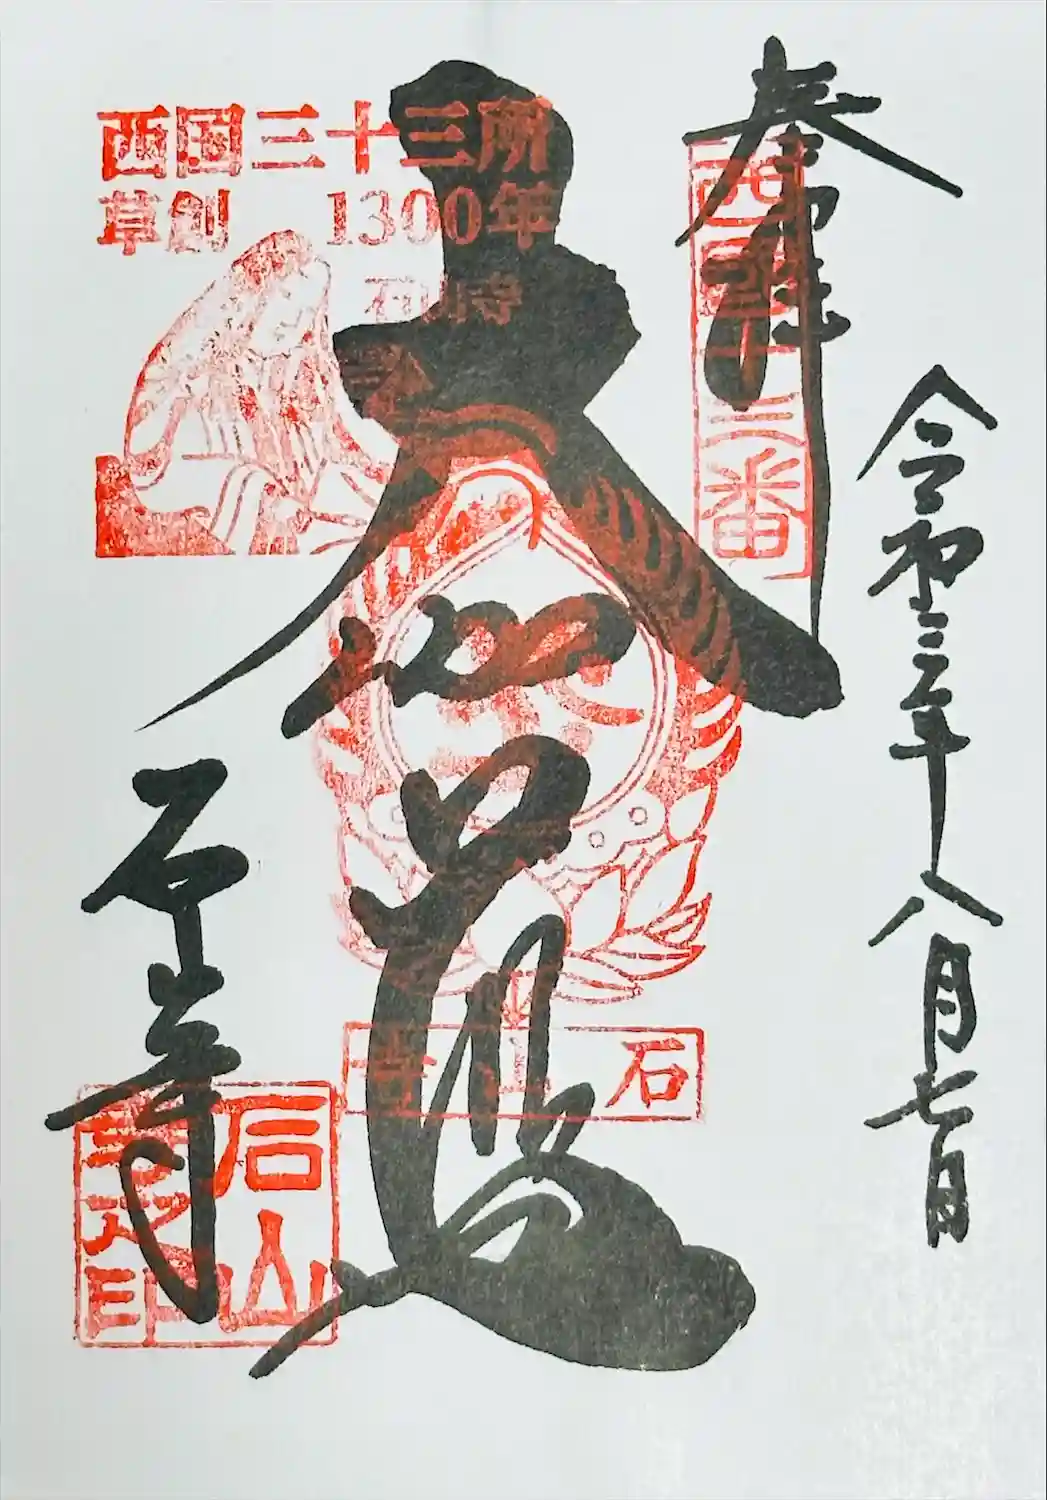 奉拝
西國十三番
令和三年八月七日
大伽藍
西国三十三所
草創 1300年
石山寺
石山寺
石山寺
石山寺之印